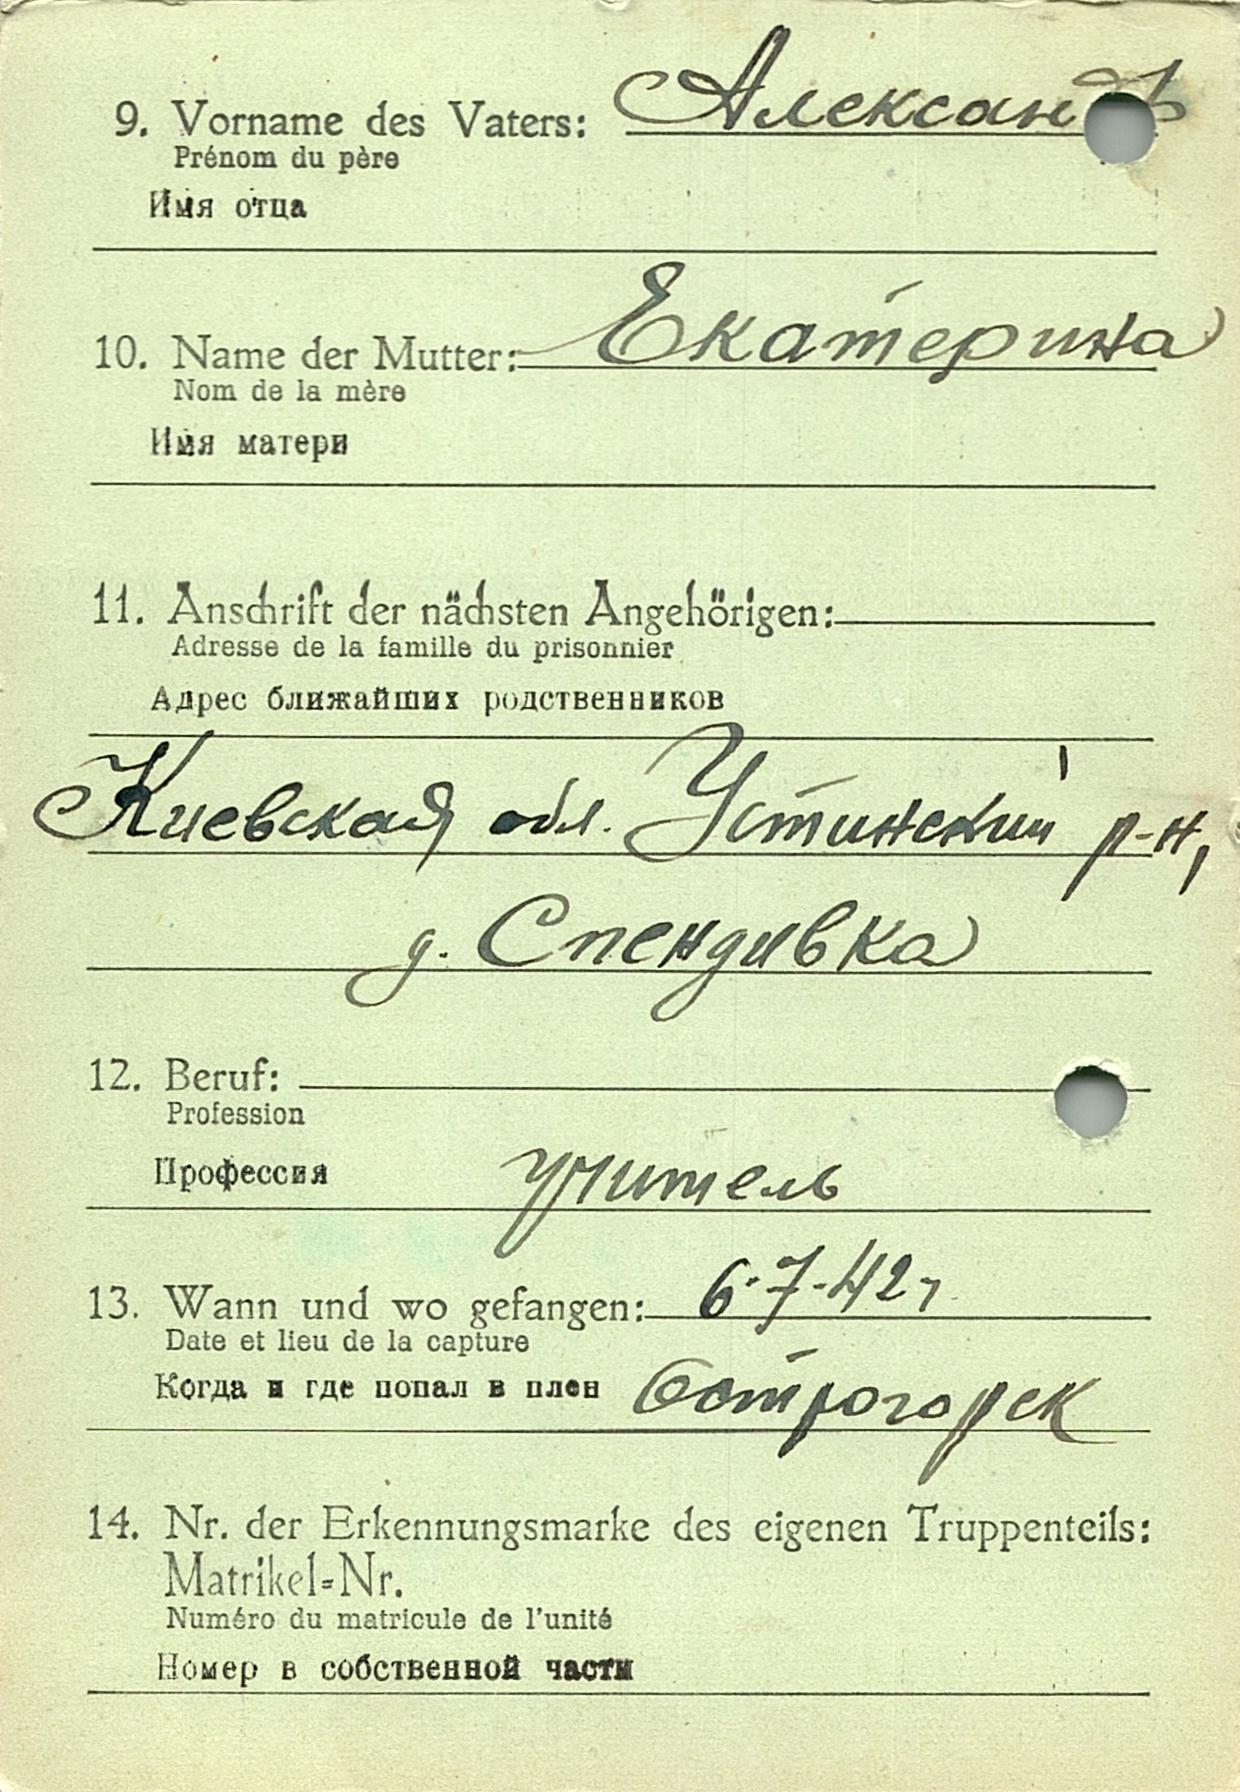 9. Vorname des Vaters: Александр
Prénom du père
Имя отца
10. Name der Mutter: Екатерина
Nom de la mère
Имя матери
11. Anschrift der nächsten Angehörigen:
Adresse de la famille du prisonnier
Адрес ближайших родственников
Киевская обл. Устинский р-н,
д. Спендивка
12. Beruf:
Profession
Профессия учитель
13. Wann und wo gefangen: 6-7-42,
Date et lieu de la capture
Когда и где попал в плен Острогорск
14. Nr. der Erkennungsmarke des eigenen Truppenteils:
Matrikel-Nr.
Numéro du matricule de l'unité
Номер в собственной части